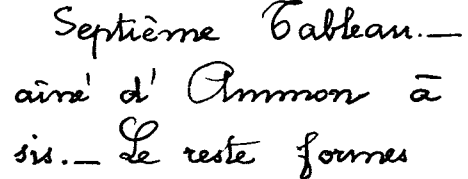 Septième Tableau. _
aîné d' Ammon à
sis. _ Le reste formes